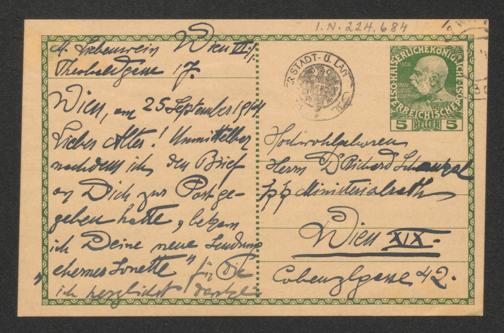 I.N. 224.684
M. Liebenwein Wien III/1.
Theobaldgasse 17.
Wien, am 25 September 1914
Lieber Alter! Unmittelbar
nachdem ich den Brief
an Dich zur Post ge-
geben hatte, bekam
ich Deine neue Sendung
"ehernes Sonette" für die
ich herzlichst danke
STADT- U.
KAISERLICHE KÖNIGLICHE
ÖSTERREICHISCHE
5 HELLER 5
Hochwohlgeboren
Herrn Dr Richard Schaukal
Ministerialrath
Wien XIX.
Cobenzlgasse 42.